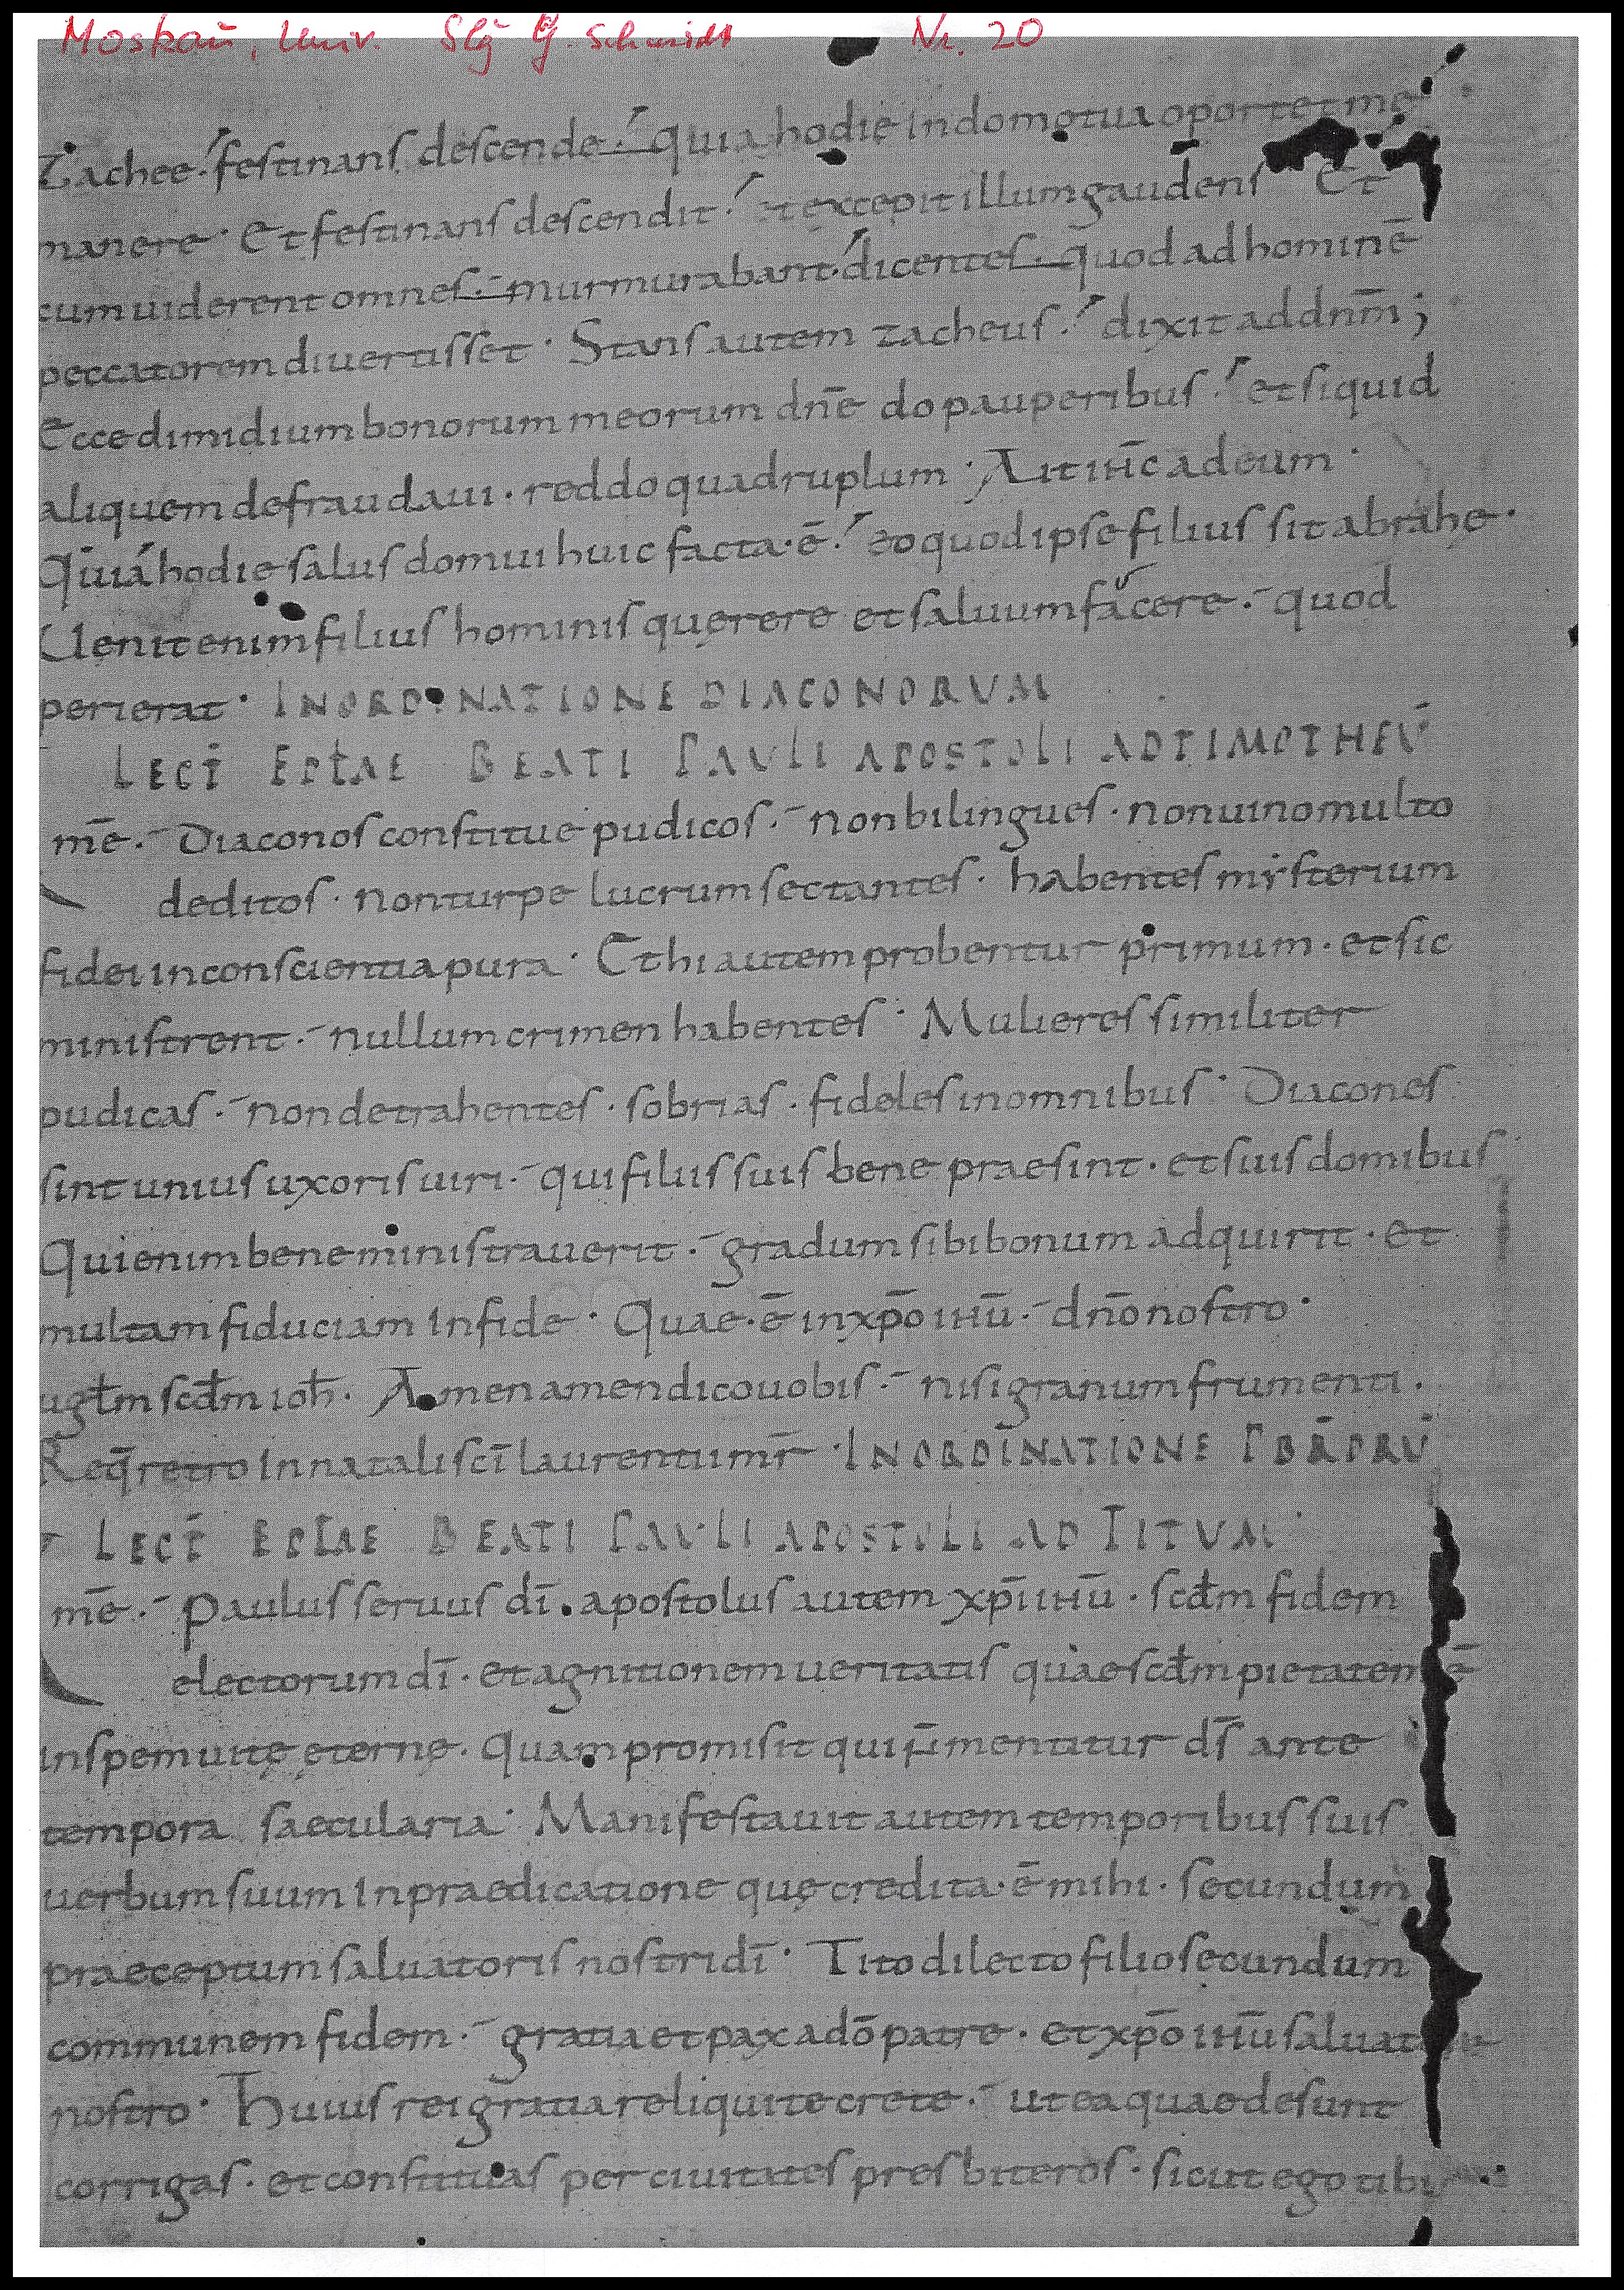 Moskau, Univ. Slg G. Schmidt Nr. 20
Zachee. festinans descende. quia hodie in domo tua oportet me
manere. Et festinans descendit. et excepit illum gaudens Et
cum uiderent omnes. murmurabant. dicentes. quod ad hominē
peccatorem diuertisset. Stans autem zacheus. dixit ad dnm̄;
Ecce dimidium bonorum meorum dnē do pauperibus. et siquid
aliquem defraudaui. reddo quadruplum. Ait ihc̄ ad eum.
Quia hodie salus domui huic facta.ē. eo quod ipse filius sit abrahe.
Uenit enim filius hominis quęrere et saluum facere. quod
perierat. IN ORDINATIONE DIACONORVM
LECT̄ EPŁAE BEATI PAVLI APOSTOLI AD TIMOTHEV̄
mē. Diaconos constitue pudicos. non bilingues. non uino multo
deditos. non turpe lucrum sectantes. habentes mysterium
fidei in conscientia pura. Et hi autem probentur primum. et sic
ministrent. nullum crimen habentes. Mulieres similiter
pudicas. non detrahentes. sobrias. fideles in omnibus. Diacones
sint unius uxoris uiri. qui filiis suis bene praesint. et suis domibus
Qui enim bene ministrauerit. gradum sibi bonum adquirit. et
multam fiduciam in fide. Quae.ē in xpō ihū. dnō nostro.
ugłm scdm̄ ioh̄. Amen amen dico uobis. nisi granum frumenti.
Req̄ retro in natali scī laurentii mr̄. IN ORDINATIONE PBRORV̄
LECT̄ EPŁAE BEATI PAVLI APOSTOLI AD TITVM
mē. Paulus seruus dī. apostolus autem xpī ihū. scdm̄ fidem
electorum dī. et agnitionem ueritatis quae scdm̄ pietatem ē
in spem uitę eternę. Quam promisit qui n̄ mentitur ds̄ ante
tempora saecularia. Manifestauit autem temporibus suis
uerbum suum in praedicatione quę credita.ē mihi. secundum
praeceptum saluatoris nostri dī. Tito dilecto filio secundum
communem fidem. gratia et pax a dō patre. et xpō ihū saluatore
nostro. Huius rei gratia reliqui te crete. ut ea quae desunt
corrigas. et constituas per ciuitates presbiteros. sicut ego tibi